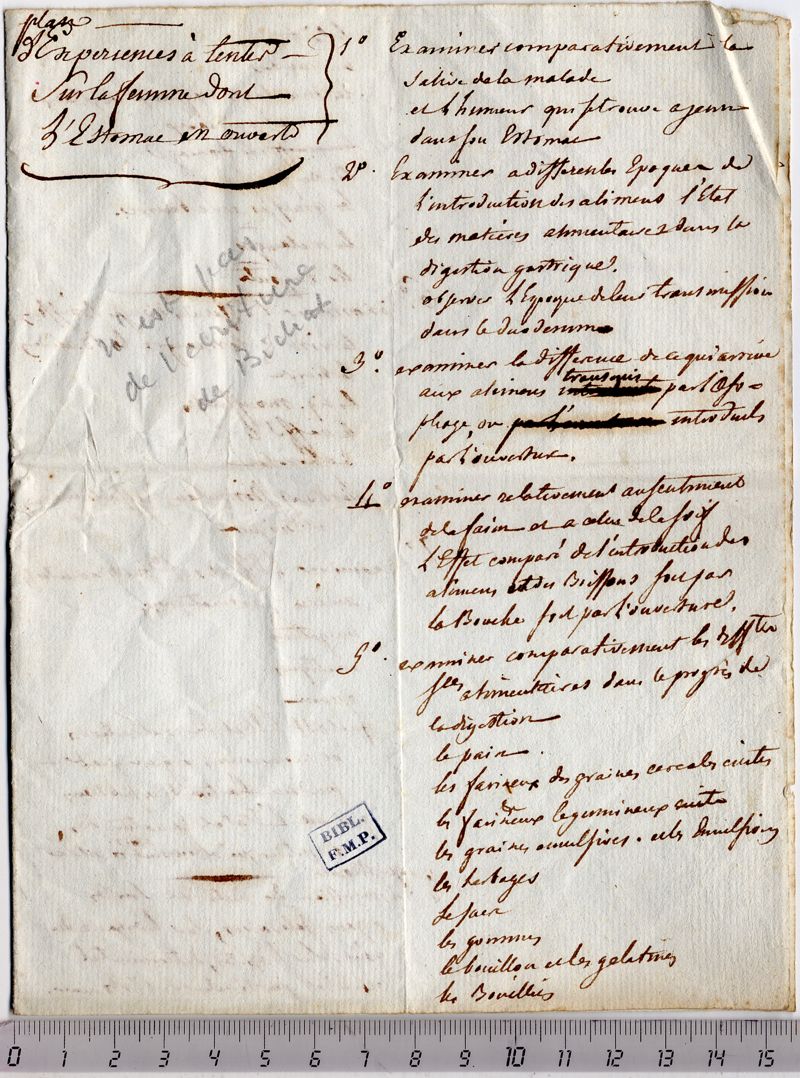 plan
d'Experiences à tenter
Sur la femme dont
L'Estomac est ouvert
n'est pas
de l'écriture
de Bichat
1° Examiner comparativement la
Salive de la malade
et l'humeur qui se trouve a jeun
dans son Estomac
2° Examiner a differentes Epoques de
l'introduction des alimens l'Etat
des matières alimentaires dans la
digestion gastrique.
observer l'Epoque de leur transmission
dans le duodenum
3° examiner la difference de ce qui arrive
aux alimens transmis par l'Œso-
phage, ou introduits
par l'ouverture.
4° examiner relativement au sentiment
de la faim et a celui de la soif
l'Effet comparé de l'introduction des
alimens et des Boissons soit par
la Bouche soit par l'ouverture.
5° examiner comparativement les
alimentaires dans le progrès de
la digestion
le pain.
les farineux des graines cereales cuites
les farineux legumineux cuits
les graines emulsives. et les Emulsions
les herbages
les gommes
le bouillon et les gelatines
les Bouillies
BIBL.
F.M.P.
0 1 2 3 4 5 6 7 8 9 10 11 12 13 14 15